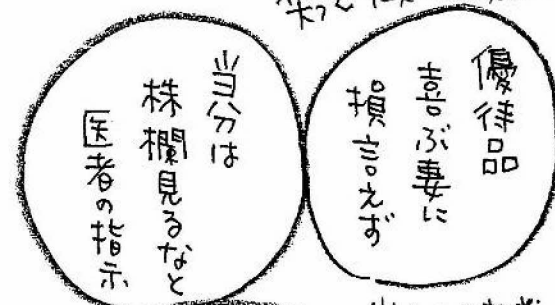 優待品
喜ぶ妻に
損言えず
当分は
株欄見るなと
医者の指示